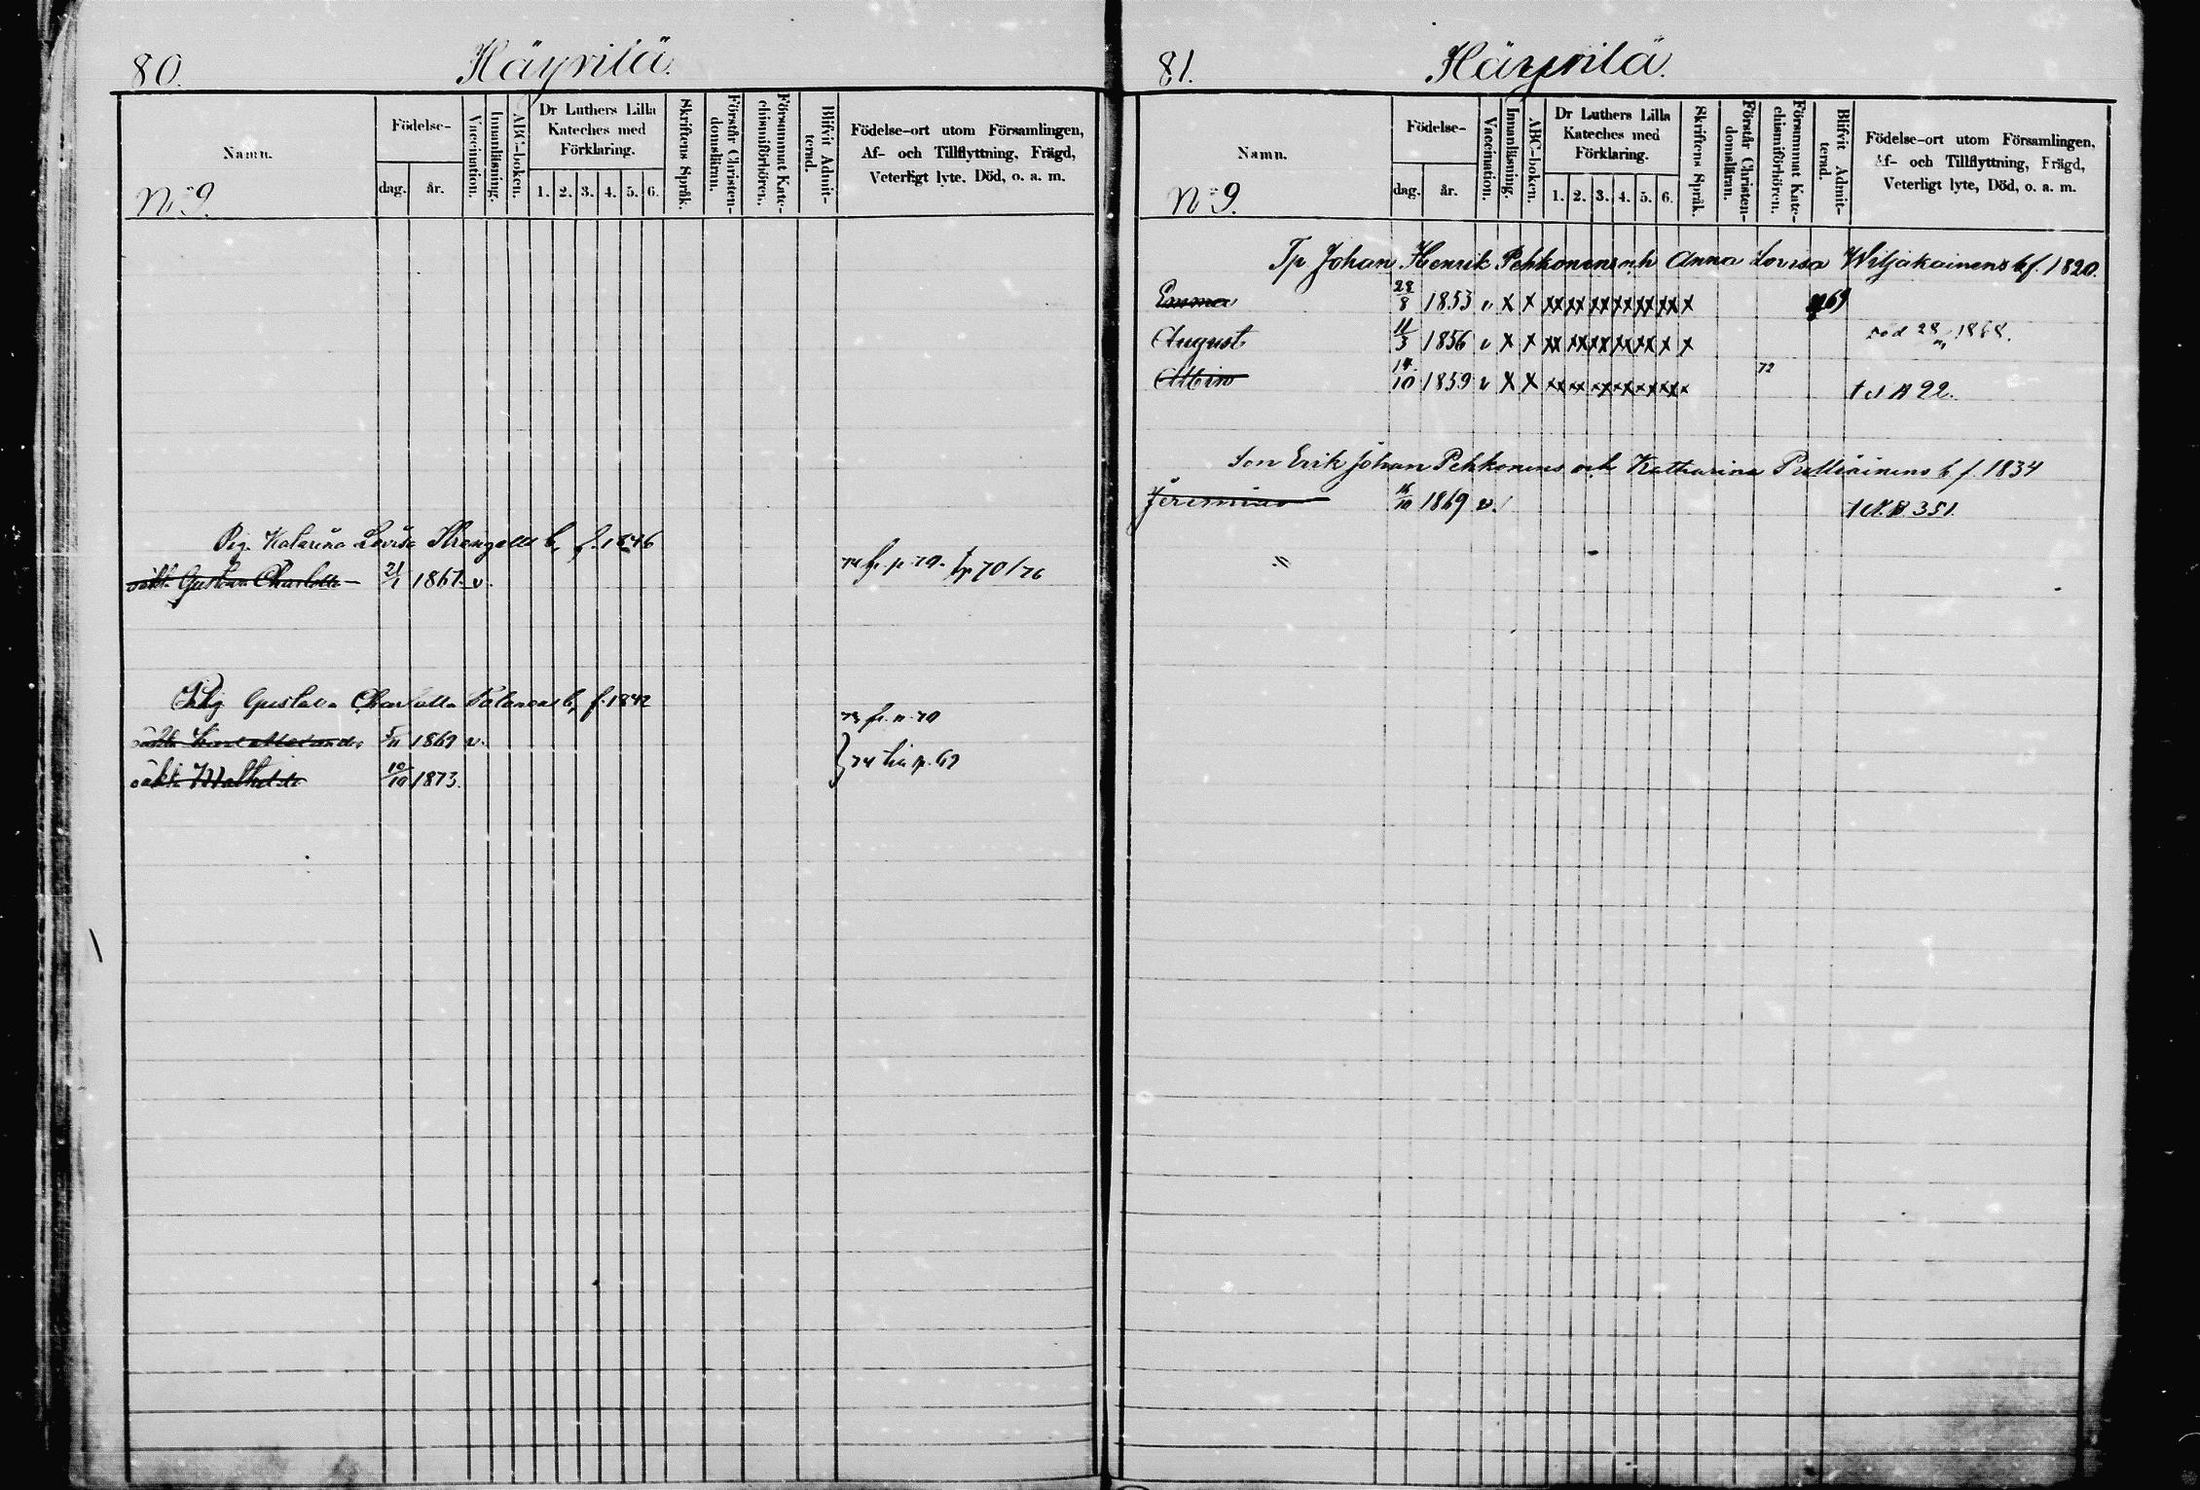 80.
Häyrilä.
Namn.
Födelse-
dag.
år.
Vaccination.
Innanläsning.
ABC-boken.
Dr Luthers Lilla
Kateches med
Förklaring.
1. 2. 3. 4. 5. 6.
Skriftens Språk.
Förstår Christen-
domsläran.
Försummat Kate-
chismiförhören.
Blifvit Admit-
terad.
Födelse-ort utom Församlingen,
Af- och Tillflyttning, Frägd,
Veterligt lyte, Död, o. a. m.
No 9.
Pig. Katarina Lovisa b. f. 1846
oäkt. Gustava Charlotta 21/1 1867. v. 74 fr. p. 79. tp 70/76
Pig Gustava Charlotta b. f. 1842
73 fr. p. 70
oäkta 1869 v.
oäkta Mathilda 10/10 1873. 74 till p. 69
81.
Häyrilä.
Namn.
Födelse-
dag.
år.
Vaccination.
Innanläsning.
ABC-boken.
Dr Luthers Lilla
Kateches med
Förklaring.
1. 2. 3. 4. 5. 6.
Skriftens Språk.
Förstår Christen-
domsläran.
Försummat Kate-
chismiförhören.
Blifvit Admit-
terad.
Födelse-ort utom Församlingen,
Af- och Tillflyttning, Frägd,
Veterligt lyte, Död, o. a. m.
No 9.
Tp Johan Henrik Pehkonens och Anna Lovisa Wiljakainens b. f. 1820.
Emma 28/8 1853 v x x xx xx xx xx xx xx x 69
August 11/3 1856 v x x xx xx xx xx xx x x död 28 1868.
Albin 14/10 1859 v x x xx xx xx xx xx xx x 72 t A B 92.
Son Erik Johan Pehkonens och Katharina b f. 1834
Jeremias 16/10 1869 v. t A. B. 351.